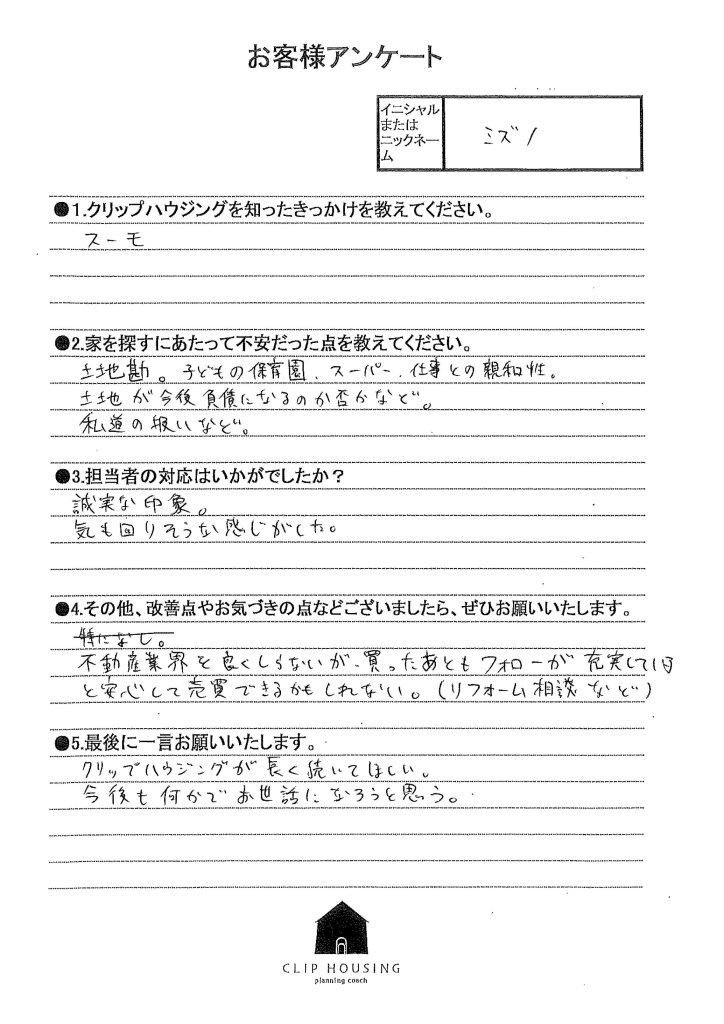 お客様アンケート
イニシャル
または
ニックネー
ム
ミズノ
●1.クリップハウジングを知ったきっかけを教えてください。
スーモ
●2.家を探すにあたって不安だった点を教えてください。
土地勘。子どもの保育園、スーパー、仕事との親和性。
土地が今後負債になるのか否かなど。
私道の扱いなど。
●3.担当者の対応はいかがでしたか？
誠実な印象。
気も回りそうな感じがした。
●4.その他、改善点やお気づきの点などございましたら、ぜひお願いいたします。
特になし。
不動産業界を良くしらないが、買ったあともフォローが充実して
と安心して売買できるかもしれない。(リフォーム相談など)
●5.最後に一言お願いいたします。
クリップハウジングが長く続いてほしい。
今後も何かでお世話になろうと思う。
CLIP HOUSING
planning coach